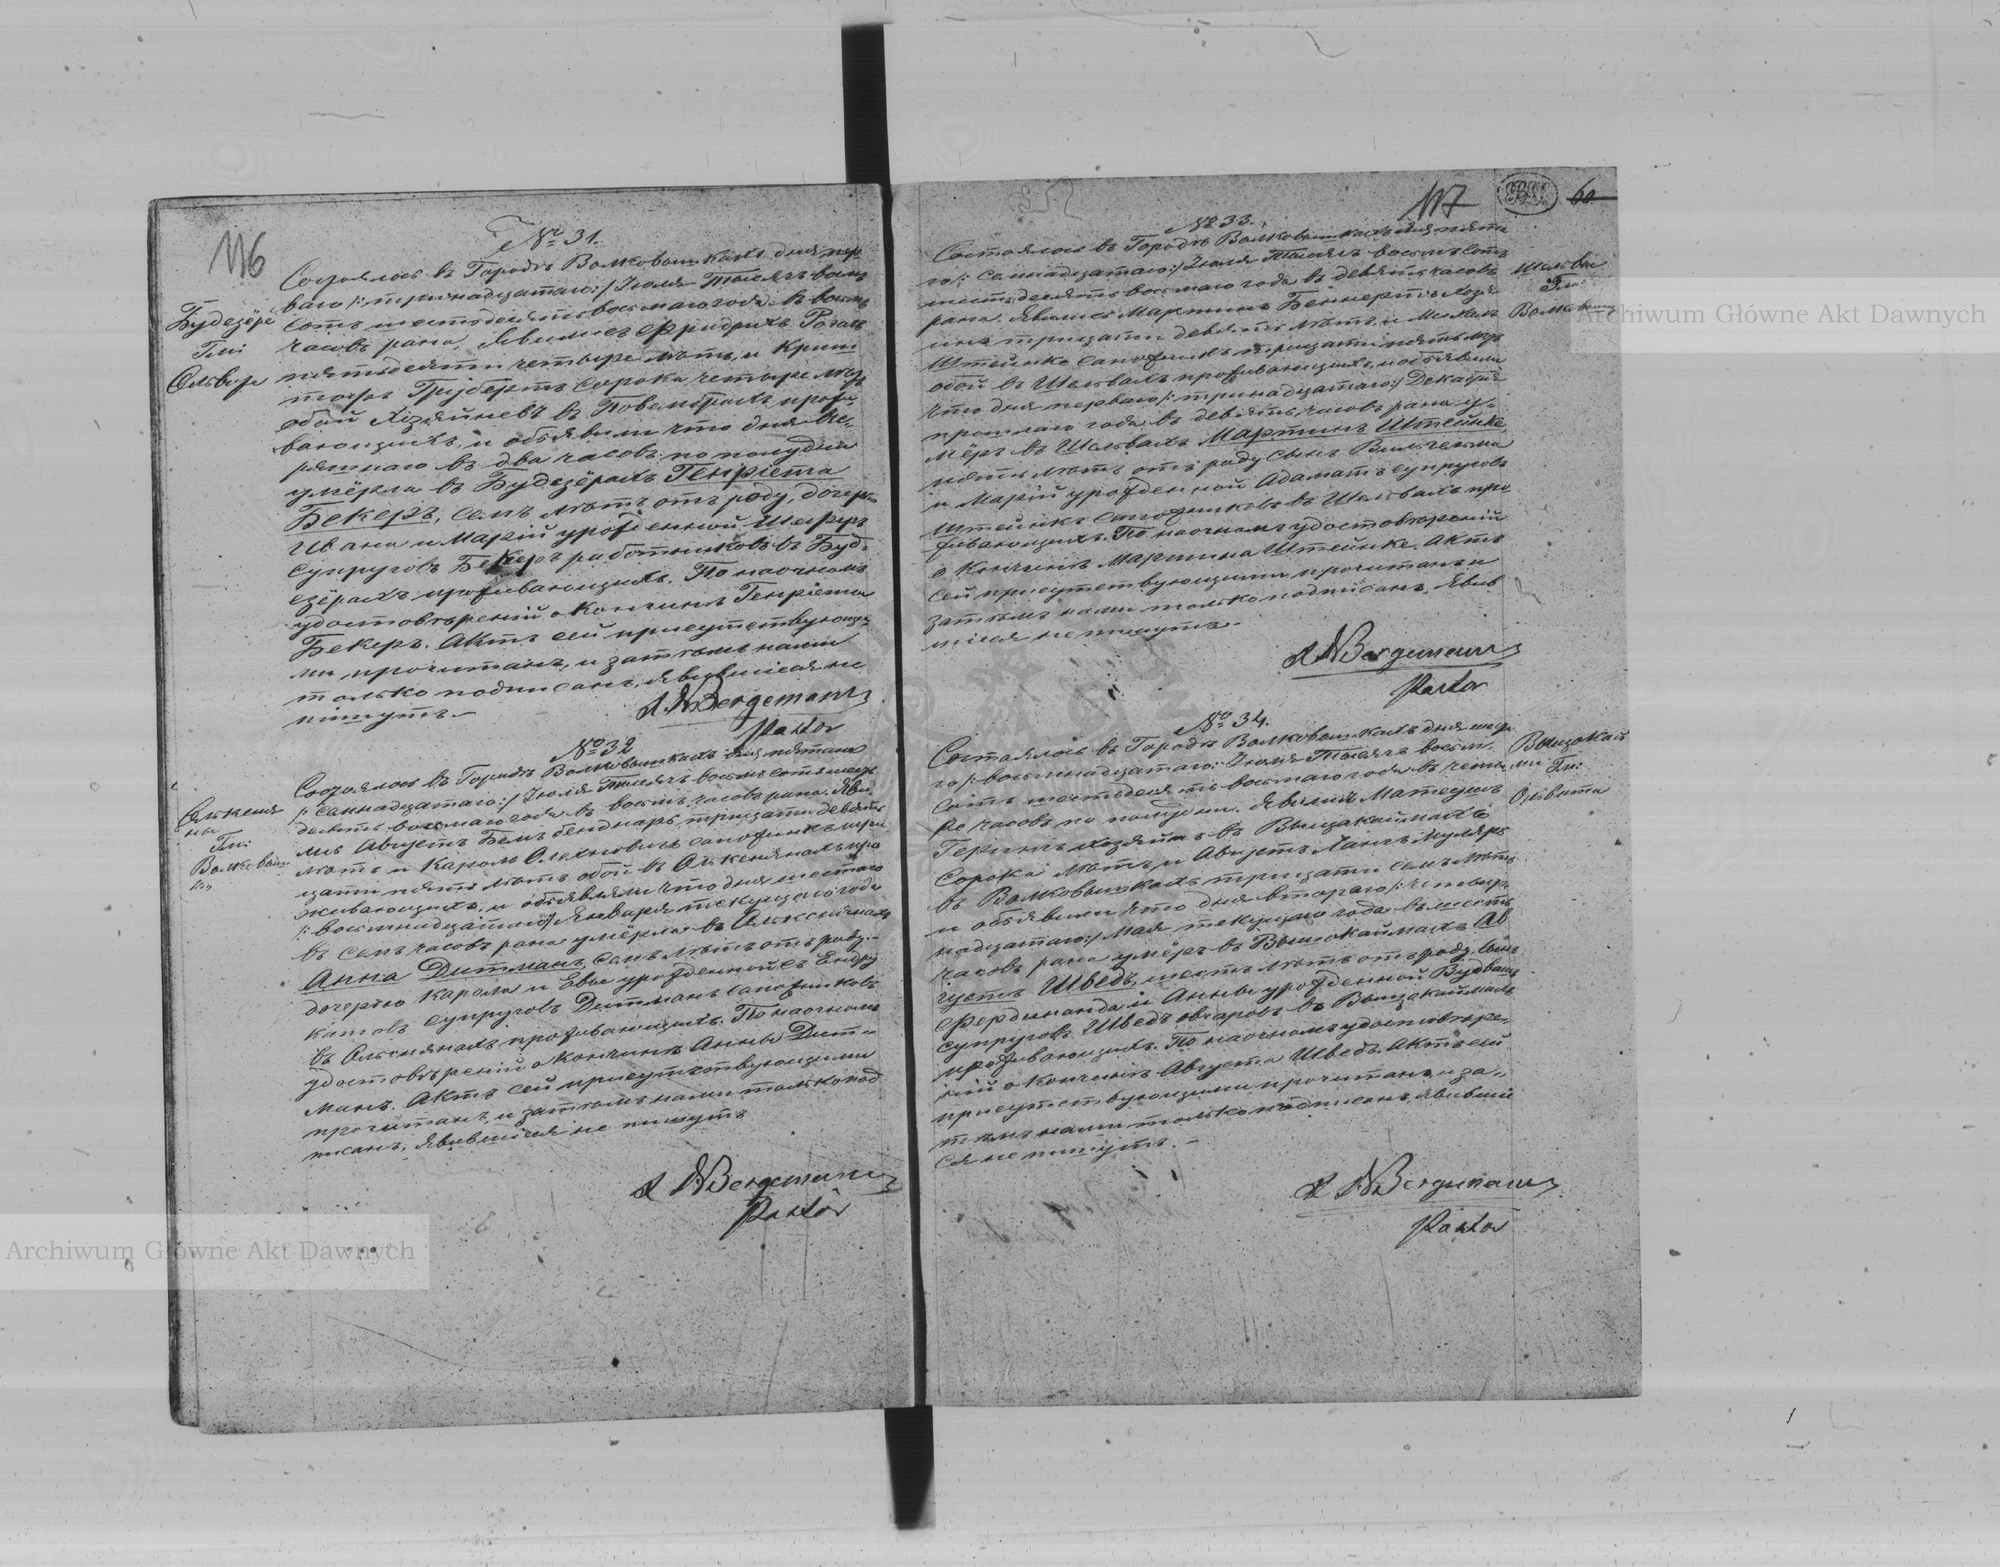 116
№ 31.
Состоялось въ Городѣ Волковышкахъ дня пер
ваго /: тринадцатаго :/ Іюля Тысяча восем
сотъ шестьдесятъ восьмаго года въ восемь
часовъ рана. Явились Фридрихъ Рогалъ
пятьдесятъ четыре лѣтъ, и Криш
тофъ Грубертъ сорока четыре лѣтъ
обой Хозяйневъ въ проживающихъ, и объявили что дня
въ два часовъ по полудни
умёрла въ Будезёрахъ Генріета
Бекеръ, семъ лѣтъ отъ роду, дочерь
Ивана и Марій урожденной
супруговъ Бекеръ работниковъ въ Буд-
езёрахъ проживающихъ. По наочномъ
удостовѣреній о Кончинѣ Генріета
Бекеръ. Актъ сей присутствующи
ми прочитанъ, и затѣмъ нами
только подписанъ, Явившіеся не
пишутъ.-
Bergemann
Pastor
Будезёрё
Гмі
№ 32
Состоялось въ Городѣ Волковышкахъ дня пятаго
/: семнадцатаго :/ Іюля Тысяча восемъ сотъ шесть
десятъ восьмаго года въ восемь часовъ рана. Яви
лись Августъ Бемъ бенднаръ тридцати девять
лѣтъ и Кароль сапожникъ трид
цати пять лѣтъ обой въ про
живающихъ, и объявили что дня шестаго
/: восьмнадцатаго :/ Января текущаго года
въ семъ часовъ рана умёрла въ
Анна Дитманъ семъ лѣтъ отъ роду.-
дочерью Кароля и Евы урожденной съ Ендру
катовъ супруговъ Дитманъ сапожниковъ
въ проживающихъ. По наочномъ
удостовѣреній о Кончинѣ Анны Дит-
манъ. Актъ сей присутствующими
прочитанъ, и затѣмъ нами только под
писанъ, Явившіеся не пишутъ
Bergemann
Pastor
Гмі
117
60
№ 33.
Состоялось въ Городѣ Волковышкахъ дня пята
го /: семнадцатаго :/ Іюля Тысяча восемъ сотъ
шестьдесятъ восьмаго года въ девять часовъ
рана. Явились Мартинъ Беннертъ Хозя-
инъ тридцати девять лѣтъ, и
Штейнке сапожникъ тридцати пять лѣтъ
обой въ Шельвахъ проживающихъ, и объявили
что дня перваго /: тринадцатаго :/ Декабря
прошлаго года въ девять часовъ рана у-
мёръ въ Шельвахъ Мартинъ Штейнке,
пять лѣтъ отъ роду сынъ Вильгельма
и Марій урожденной Адаматъ супруговъ
Штейнкъ сапожниковъ въ Шельвахъ про
живающихъ. По наочномъ удостовѣреній
о Кончинѣ Мартина Штейнке. Актъ
сей присутствующими прочитанъ и
затѣмъ нами только подписанъ, Явив
шіеся не пишутъ.-
Bergemann
Pastor
Шельвы
Гмі
№ 34.
Состоялось въ Городѣ Волковышкахъ дня шеста
го /: восьмнадцатаго :/ Іюля Тысяча восем-
сотъ шестьдесятъ восьмаго года въ четы
ре часовъ по полудни. Явились Матеушъ
Герингъ хозяйнъ въ Вышокаймахъ
сорока лѣтъ, и Августъ Лангъ муляръ
въ Волковышкахъ тридцати семъ лѣтъ
и объявили что дня втораго /: четыр
надцатаго :/ Мая текущаго года въ шесть
часовъ рана умёръ въ Вышокаймахъ Ав
густъ Шведъ, шесть лѣтъ отъ роду, сынъ
Фердинанда и Анны урожденной
супруговъ Шведъ овчаровъ въ Вышокаймахъ
проживающихъ. По наочномъ удостовѣре-
ній о Кончинѣ Августа Шведъ. Актъ сей
присутствующими прочитанъ и за-
тѣмъ нами только подписанъ, Явившіе
ся не пишутъ.-
Bergemann
Pastor
Вышокай
мы Гм:
Ольвита
Archiwum Główne Akt Dawnych
Archiwum Główne Akt Dawnych